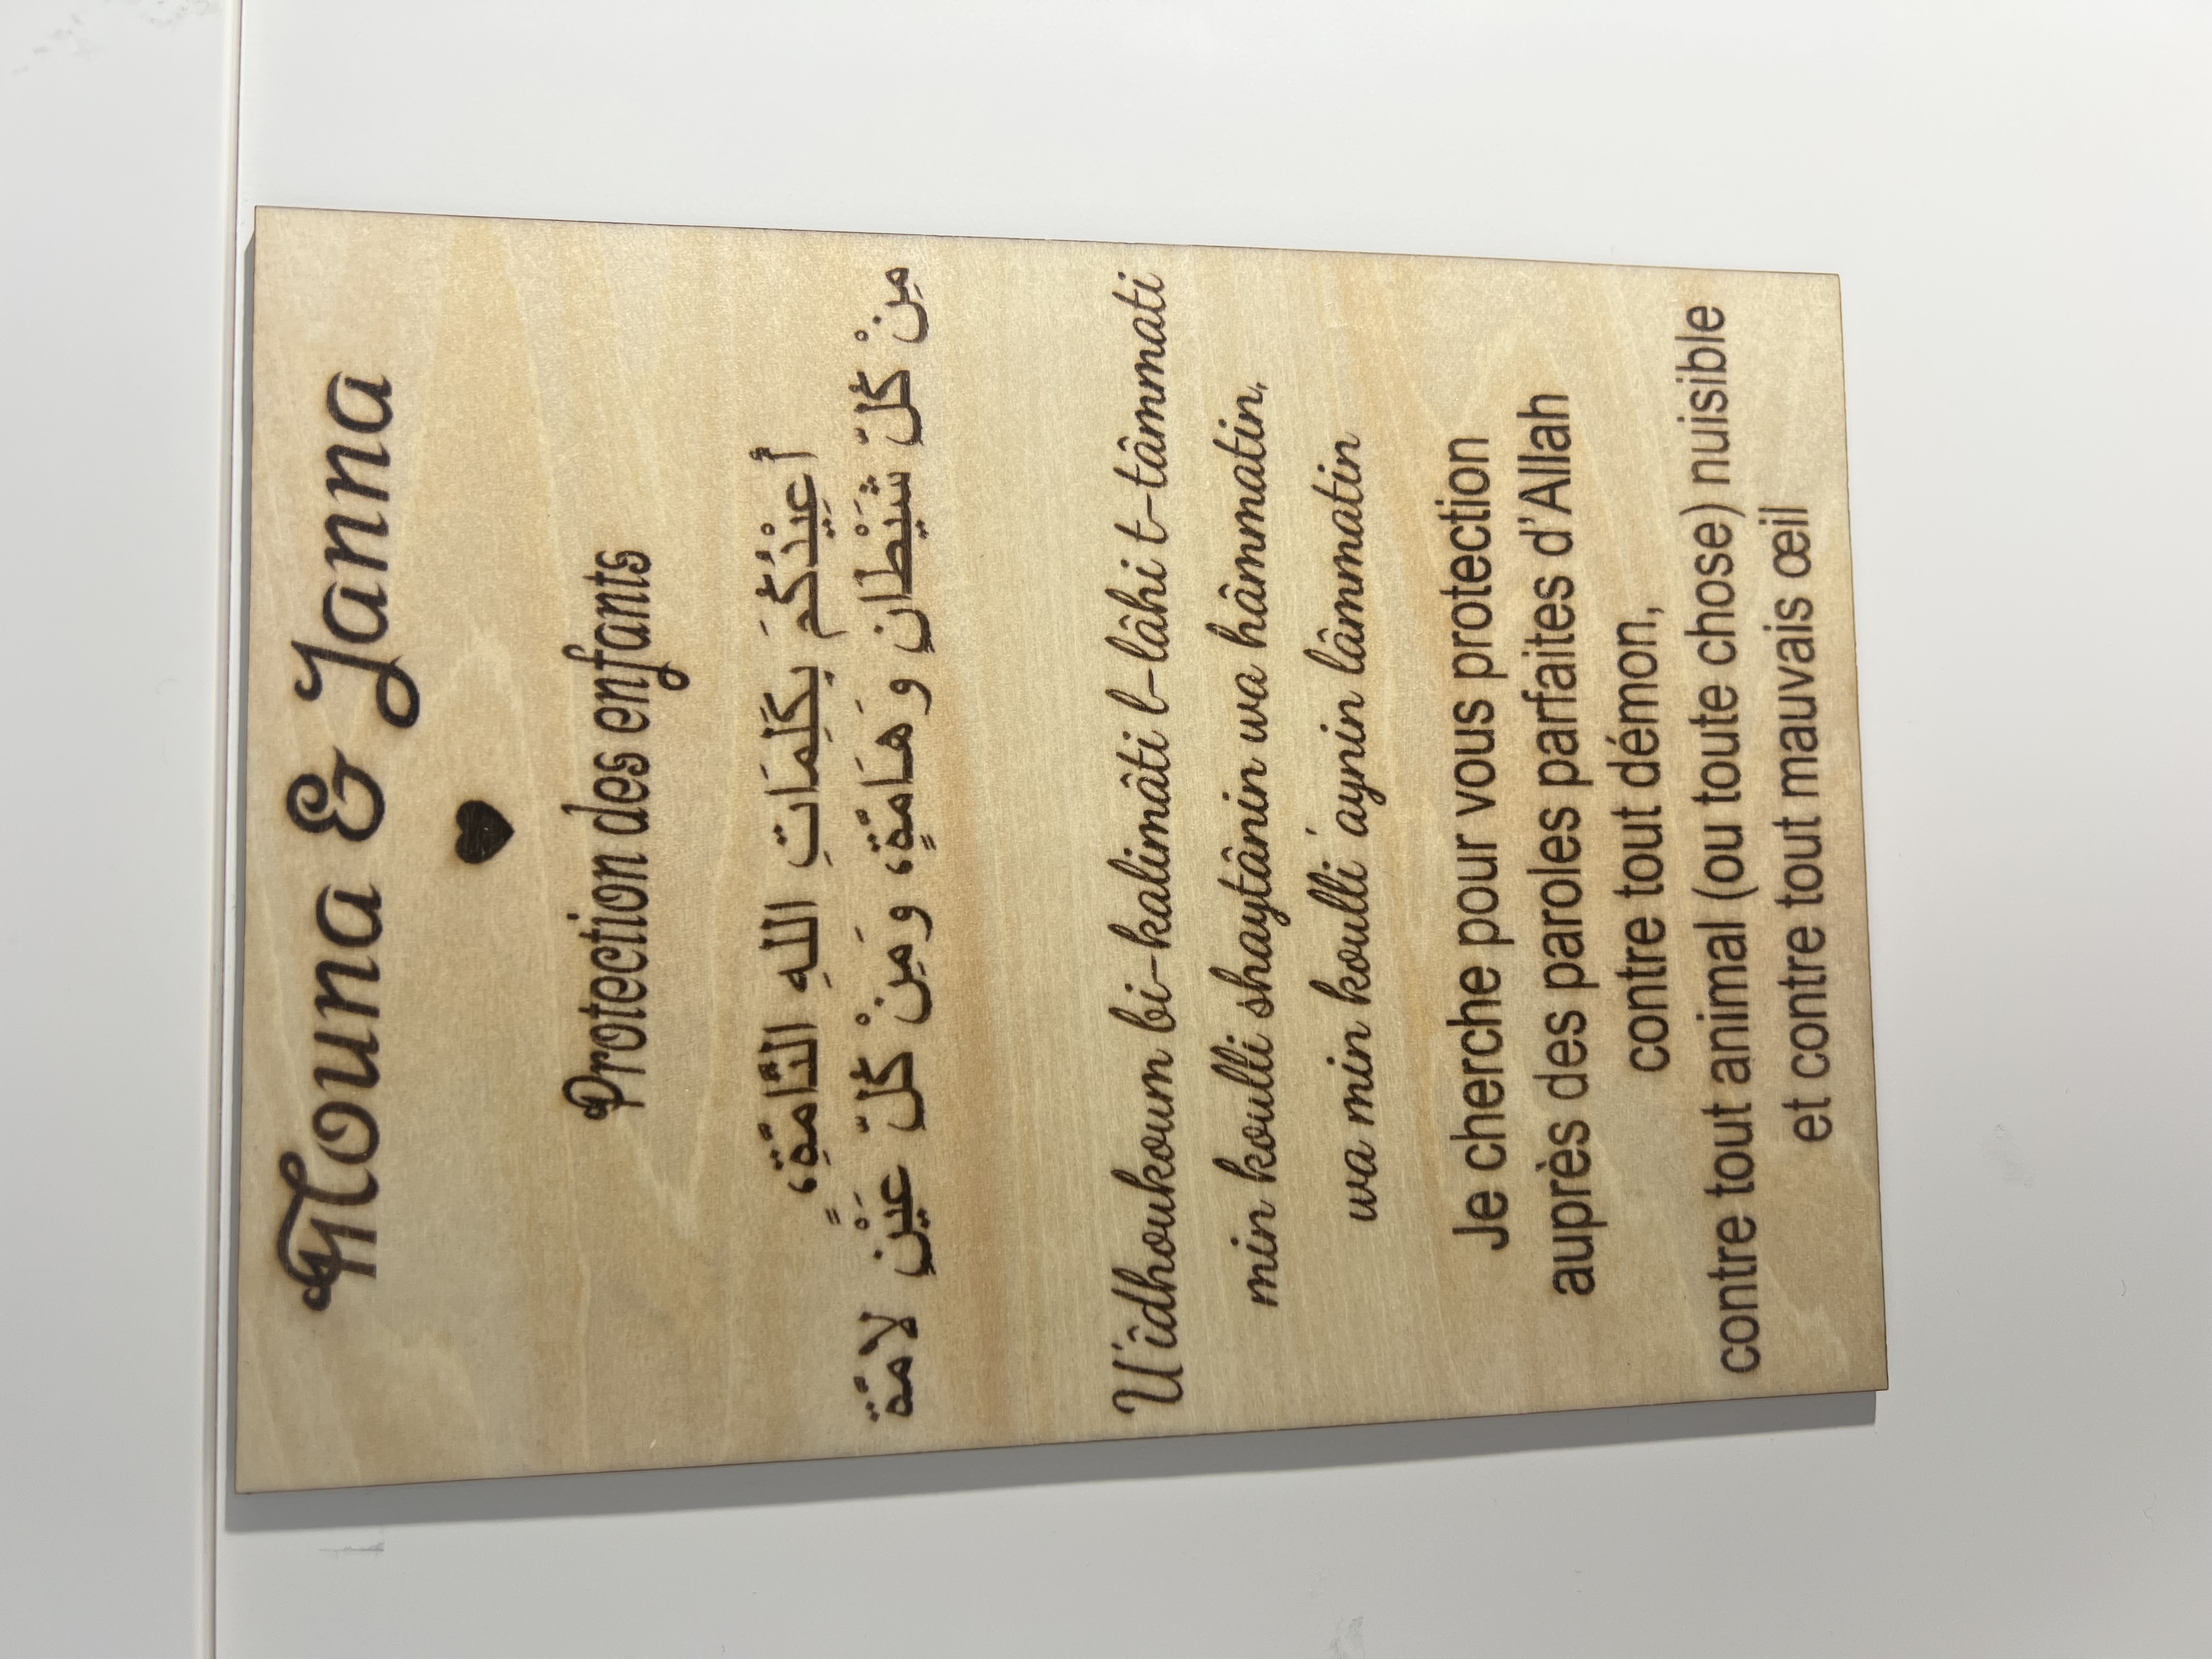 Mouna & Janna
♥
Protection des enfants
أُعِيْذُكُمَ بِكَلِمَاتِ اللهِ التَّامَّةِ،
مِنْ كُلِّ شَيْطَانٍ وَهَامَّةٍ، وَمِنْ كُلِّ عَيْنٍ لامَّة
U'îdhoukoum bi-kalimâti l-lâhi t-tâmmati
min koulli shaytânin wa hâmmatin,
wa min koulli 'aynin lâmmatin
Je cherche pour vous protection
auprès des paroles parfaites d'Allah
contre tout démon,
contre tout animal (ou toute chose) nuisible
et contre tout mauvais œil